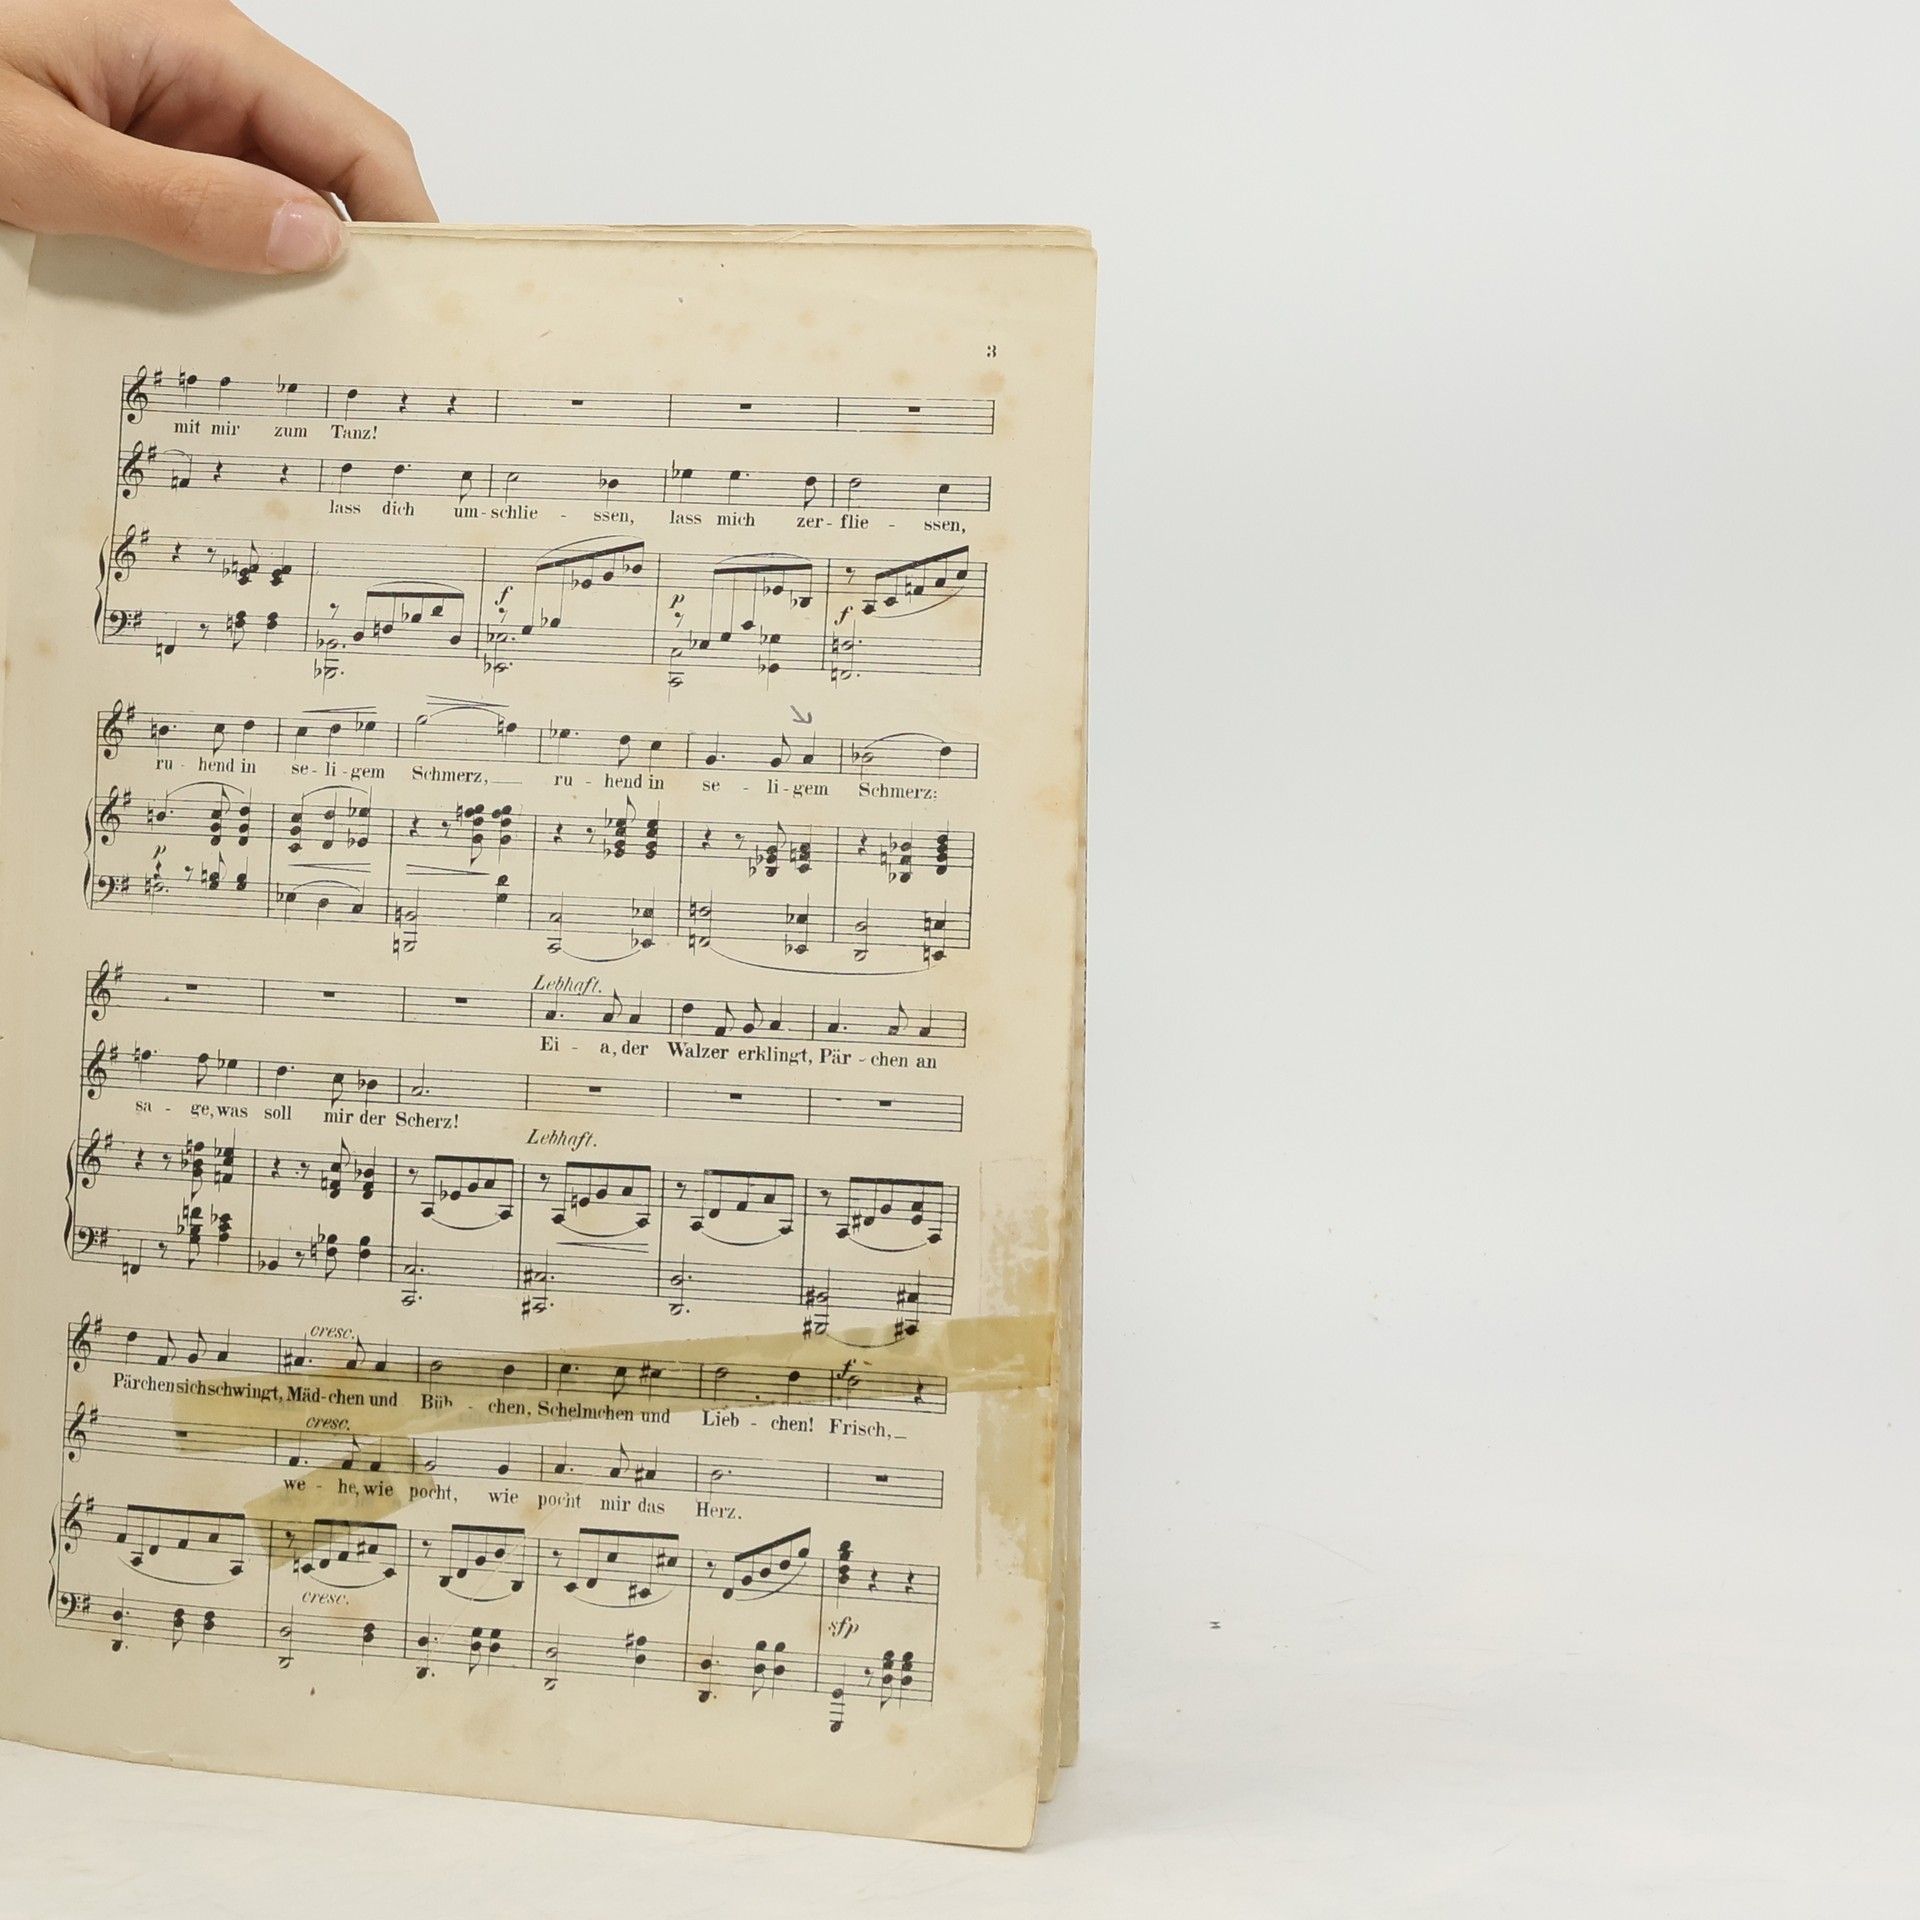 3
mit mir zum Tanz!
lass dich um-schlie - ssen, lass mich zer-flie - ssen,
f p f
ru - hend in se-li-gem Schmerz, ru - hend in se - li-gem Schmerz;
p
Lebhaft.
Ei - a, der Walzer erklingt, Pär - chen an
sa - ge, was soll mir der Scherz!
Lebhaft.
cresc. f
Pärchen sich schwingt, Mäd-chen und Büb - chen, Schelmchen und Lieb - chen! Frisch,
cresc.
we - he, wie pocht, wie pocht mir das Herz.
cresc. sfp